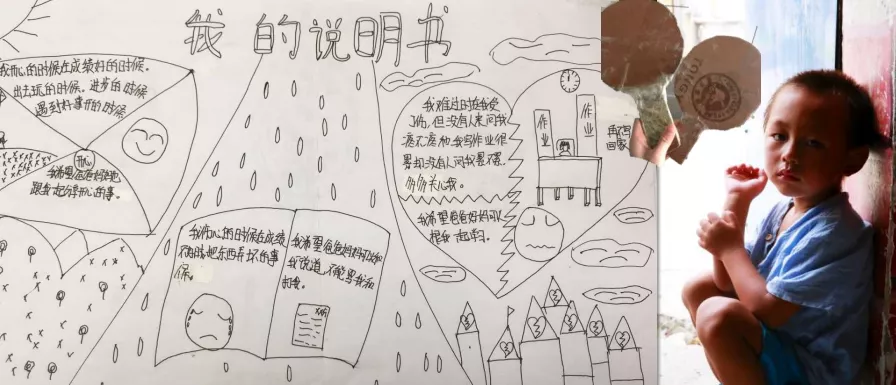 我的说明书
我开心的时候在成绩好的时候。
出去玩的时候、进步的时候
遇到好事开的时候
开心
我希望爸爸妈妈也
跟我一起分享开心的事。
我伤心的时候在成绩
不好时把东西弄坏的事
候。
我希望爸爸妈妈可以和
我说道,不能骂我和
打我。
我难过时是我受
了伤,但没有人来问我
疼不疼和我写作业很
累却没有人问我累不累。
多多关心我。
我希望爸爸妈妈可以
跟我一起学习。
作业
作业